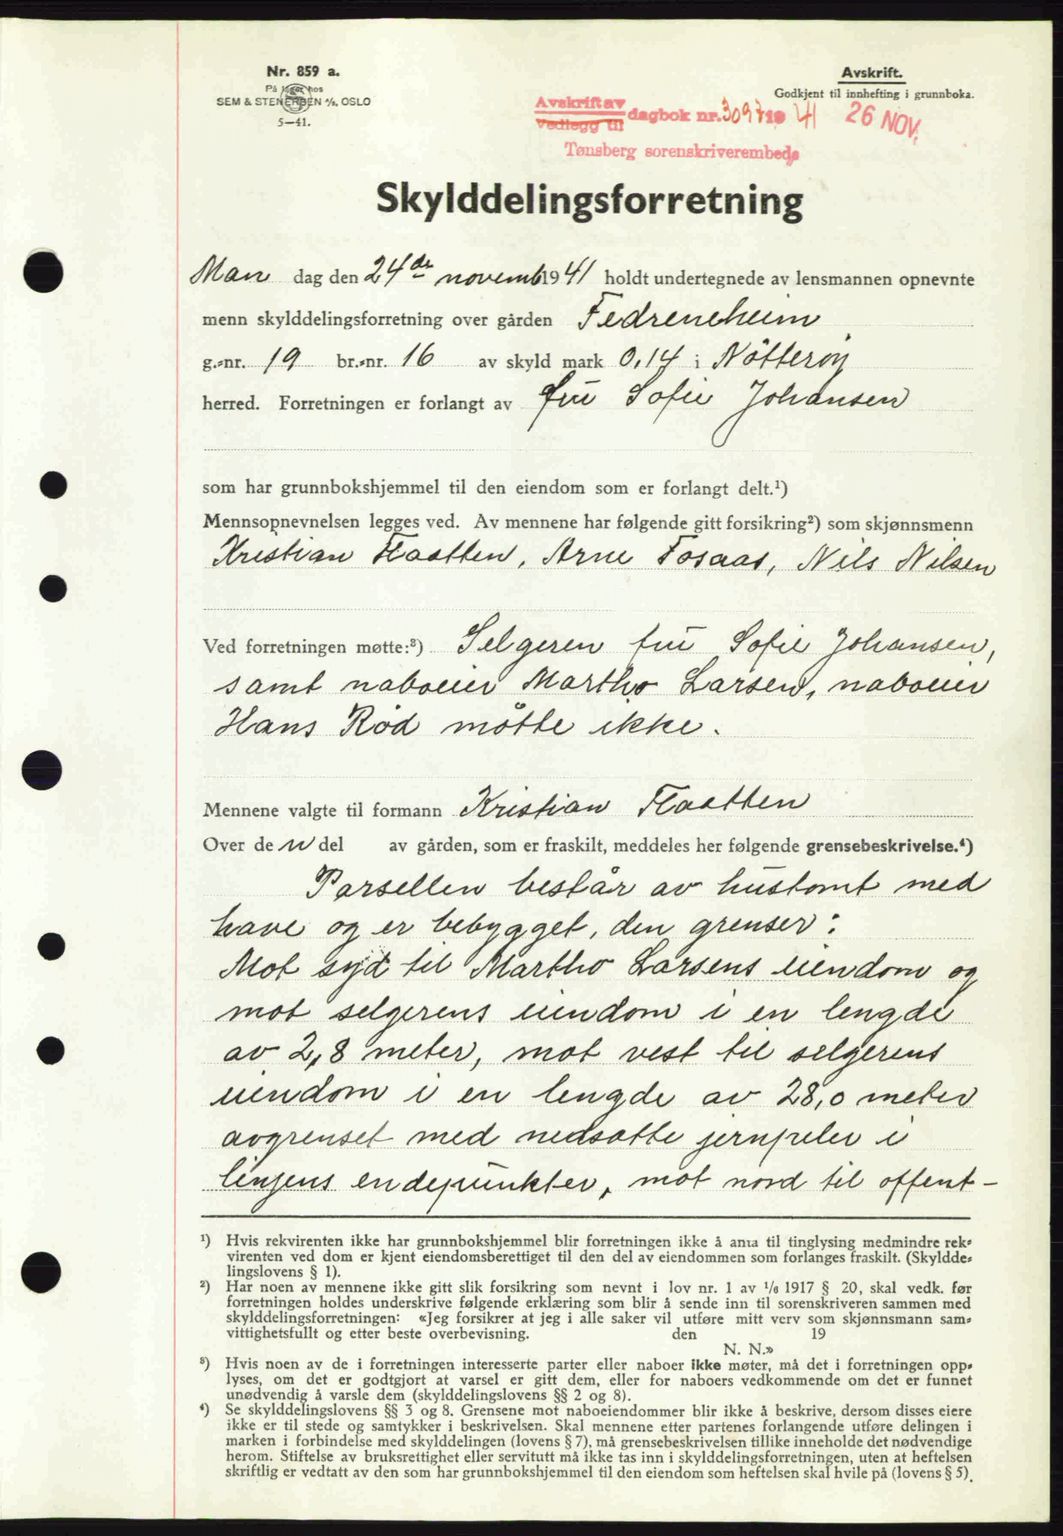 Nr. 859 a.
På lager hos
SEM & STENERSEN A/S. OSLO
5—41.
Avskrift.
Godkjent til innhefting i grunnboka.
Avskrift av
Vedlegg til
dagbok nr. 3097 19 41 26 NOV.
Tønsberg sorenskriverembede
Skylddelingsforretning
Man dag den 24de novemb 1941 holdt undertegnede av lensmannen opnevnte
menn skylddelingsforretning over gården Fedreneheim
g.-nr. 19 br.-nr. 16 av skyld mark 0,14 i Nötteröy
herred. Forretningen er forlangt av fru Sofie Johansen
som har grunnbokshjemmel til den eiendom som er forlangt delt.¹)
Mennsopnevnelsen legges ved. Av mennene har følgende gitt forsikring²) som skjønnsmenn
Kristian Flaatten, Arne Fosaas, Nils Nilsen
Ved forretningen møtte:³) Selgeren fru Sofie Johansen,
samt naboeier Martho Larsen, naboeier
Hans Rød møtte ikke.
Mennene valgte til formann Kristian Flaatten
Over de n del av gården, som er fraskilt, meddeles her følgende grensebeskrivelse.⁴)
Parsellen består av hustomt med
have og er bebygget, den grenser:
Mot syd til Martho Larsens eiendom og
mot selgerens eiendom i en lengde
av 2,8 meter, mot vest til selgerens
eiendom i en lengde av 28,0 meter
avgrenset med nedsatte jernpeler i
linjens endepunkter, mot nord til offent-
¹) Hvis rekvirenten ikke har grunnbokshjemmel blir forretningen ikke å anta til tinglysing medmindre rek-
virenten ved dom er kjent eiendomsberettiget til den del av eiendommen som forlanges fraskilt. (Skyldde-
lingslovens § 1).
²) Har noen av mennene ikke gitt slik forsikring som nevnt i lov nr. 1 av 1/6 1917 § 20, skal vedk. før
forretningen holdes underskrive følgende erklæring som blir å sende inn til sorenskriveren sammen med
skylddelingsforretningen: «Jeg forsikrer at jeg i alle saker vil utføre mitt verv som skjønnsmann sam-
vittighetsfullt og etter beste overbevisning. den 19
N. N.»
³) Hvis noen av de i forretningen interesserte parter eller naboer ikke møter, må det i forretningen opp-
lyses, om det er godtgjort at varsel er gitt dem, eller for naboers vedkommende om det er funnet
unødvendig å varsle dem (skylddelingslovens §§ 2 og 8).
⁴) Se skylddelingslovens §§ 3 og 8. Grensene mot naboeiendommer blir ikke å beskrive, dersom disses eiere
ikke er til stede og samtykker i beskrivelsen. Skal mennene etter partenes forlangende utføre delingen i
marken i forbindelse med skylddelingen (lovens § 7), må grensebeskrivelsen tillike inneholde det nødvendige
herom. Stiftelse av bruksrettighet eller servitutt må ikke tas inn i skylddelingsforretningen, uten at heftelsen
skriftlig er vedtatt av den som har grunnbokshjemmel til den eiendom som heftelsen skal hvile på (lovens § 5).